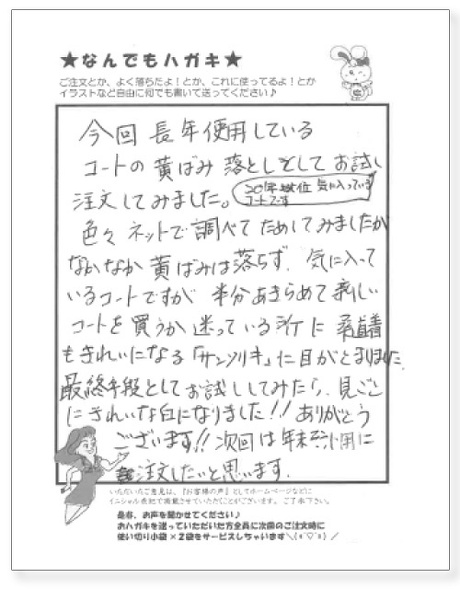 ★なんでもハガキ★
ご注文とか、よく落ちたよ！とか、これに使ってるよ！とか
イラストなど自由に何でも書いて送ってください♪
今回 長年使用している
コートの黄ばみ 落としとしてお試し
注文してみました。
20年 位 気に入っている
コートです
色々 ネットで調べて ためしてみましたが
なかなか黄ばみは落ちず、気に入って
いるコートですが 半分あきらめて 新しい
コートを買うか迷っている所に 頑固
もきれいになる「サンソリキ」に目がとまりました。
最終手段としてお試ししてみたら、見ごと
にきれいな白になりました!! ありがとう
ございます!! 次回は年末 用に
注文したいと思います。
いただいたご意見は、『お客様の声』としてホームページなどに
イニシャル表記で掲載させていただくことがございます。ご了承下さい。
是非、お声を聞かせてください♪
おハガキを送っていただいた方全員に次回のご注文時に
使い切り小袋×2袋をサービスしちゃいます＼(*^▽^*)／